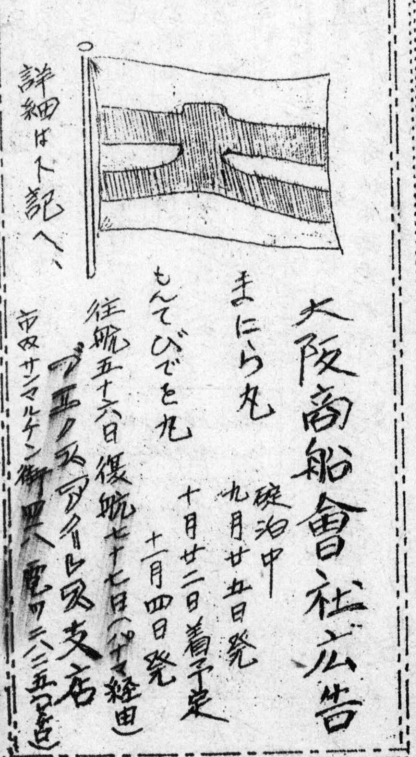 大阪商船會社広告
まにら丸
碇泊中
九月廿五日発
もんてびでを丸
十月廿二日着予定
十一月四日発
往航五十六日復航七十七日(パナマ経由)
ブエノスアイレス支店
市内サンマルチン街四八 電
詳細は下記へ、